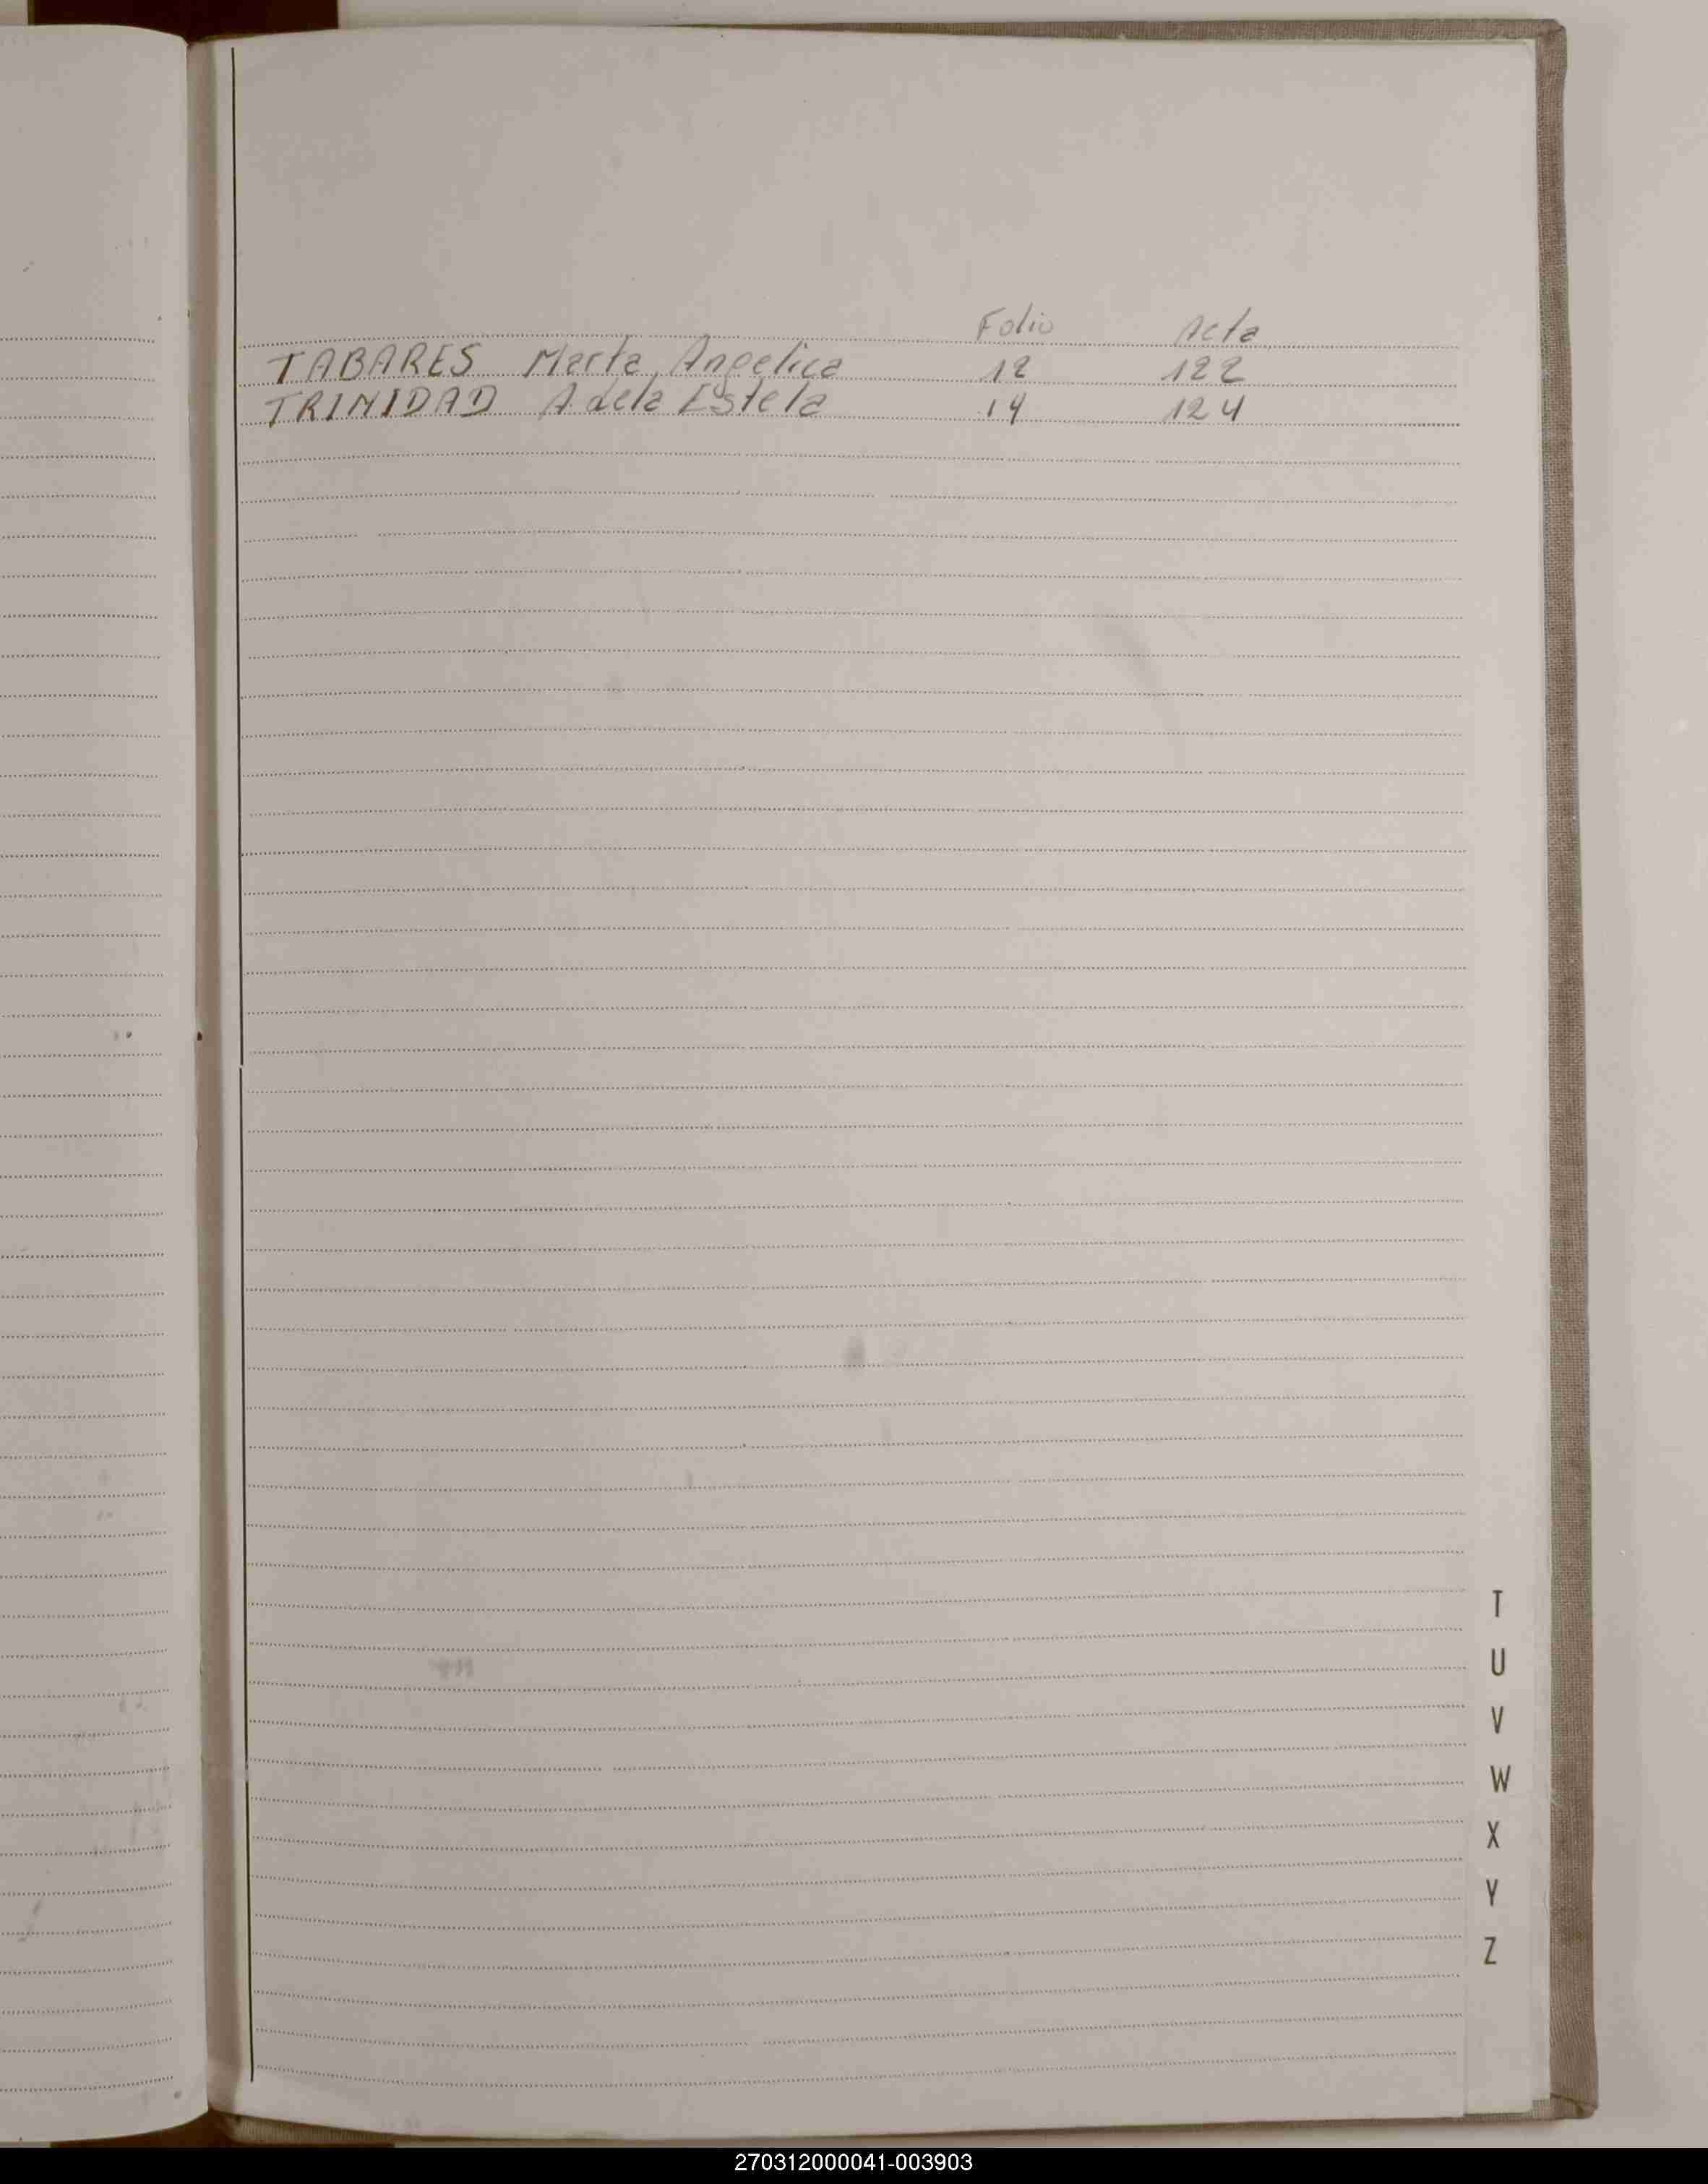 Folio Acta
TABARES Marta Angelica 12 122
TRINIDAD Adela Estela 14 124
T
U
V
W
X
Y
Z
270312000041-003903